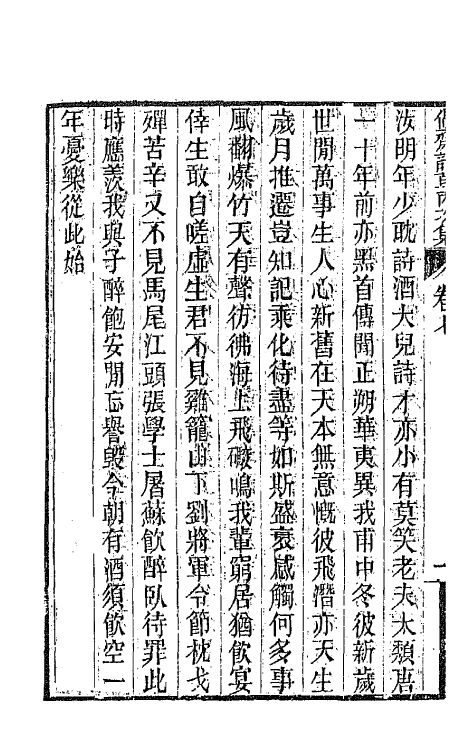 偶齋詩草內集 卷七
汝明年少耽詩酒大兒詩才亦小有莫笑老夫太頹唐
二十年前亦黑首傳聞正朔華夷異我甫中冬彼新歲
世閒萬事生人心新舊在天本無意慨彼飛潛亦天生
歲月推遷豈知記乘化待盡等如斯盛衰感觸何多事
風翻爆竹天有聲彷彿海上飛礮鳴我輩窮居猶飲宴
倖生敢自嗟虛生君不見雞籠山下劉將軍令節枕戈
殫苦辛又不見馬尾江頭張學士屠蘇飲醉臥待罪此
時應羨我與子醉飽安閒忘譽毀今朝有酒須飲空一
年憂樂從此始